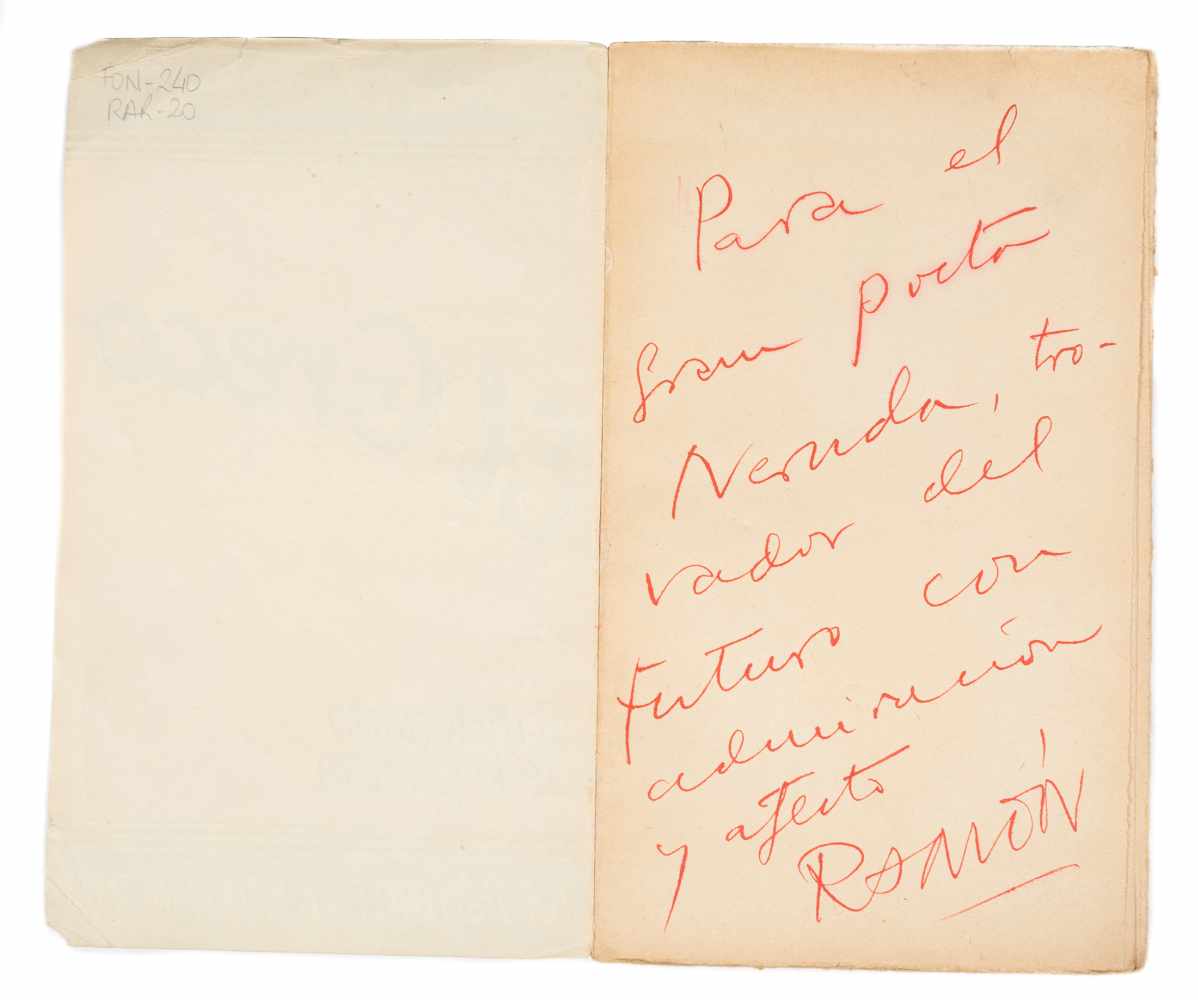 FON-240
RAR-20
Para el
gran poeta
Neruda, tro-
vador del
futuro con
admiración
y afecto
RAMÓN